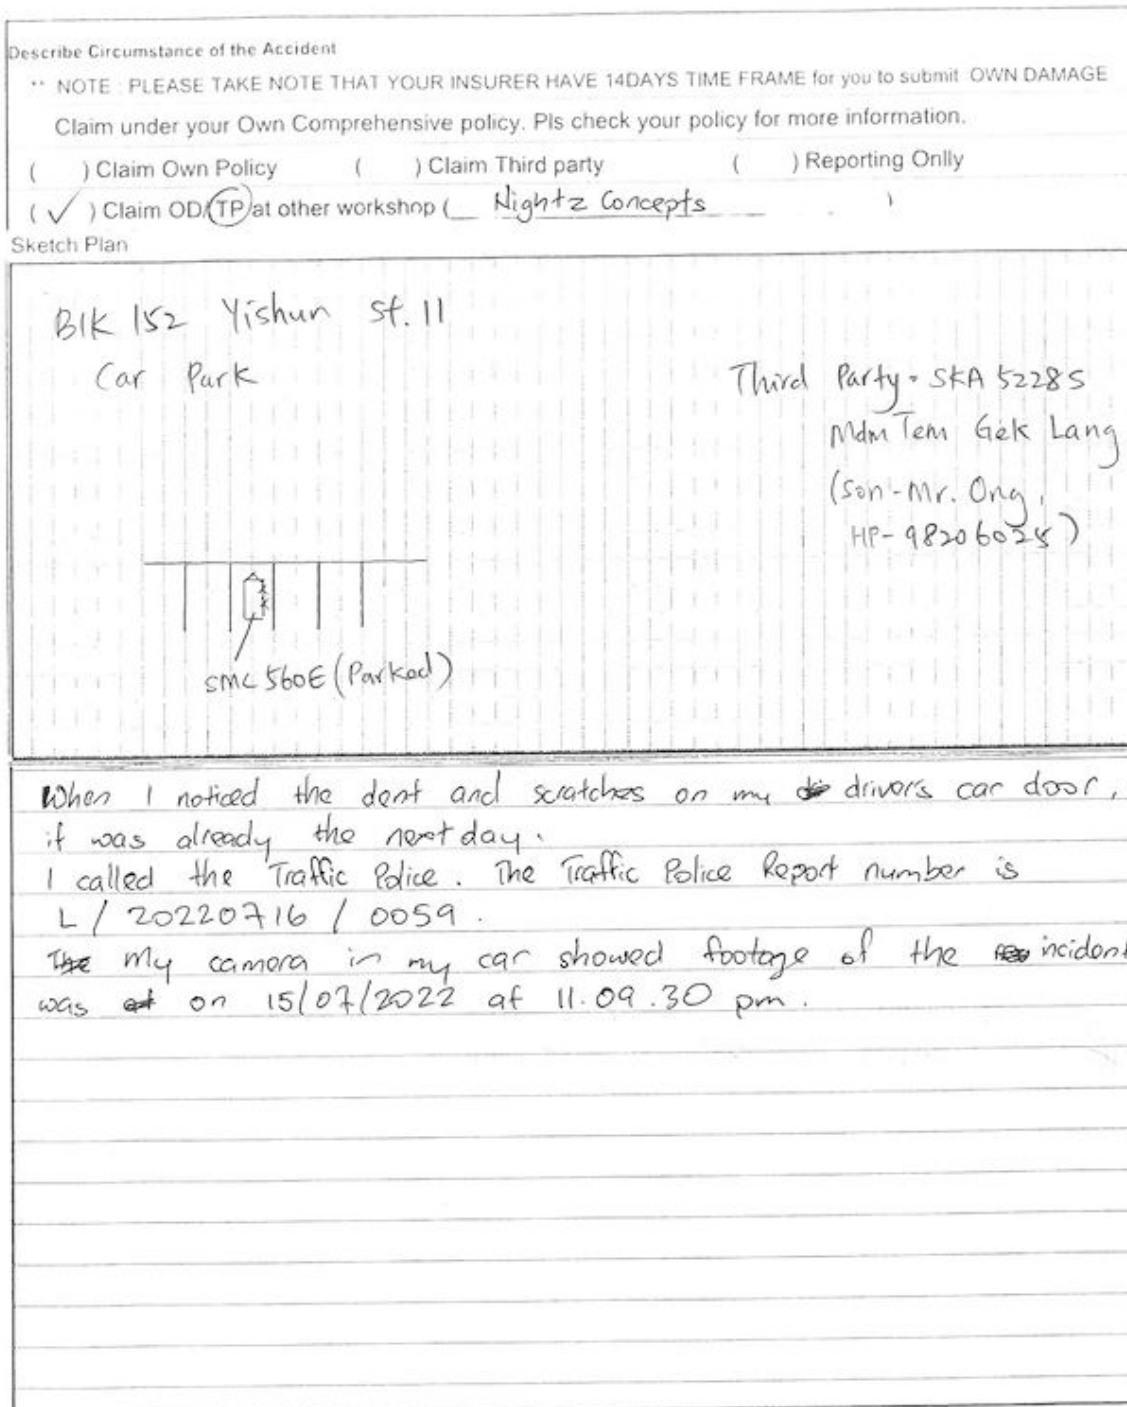 Describe Circumstance of the Accident
** NOTE : PLEASE TAKE NOTE THAT YOUR INSURER HAVE 14DAYS TIME FRAME for you to submit OWN DAMAGE
Claim under your Own Comprehensive policy. Pls check your policy for more information.
( ) Claim Own Policy ( ) Claim Third party ( ) Reporting Onlly
( ✓ ) Claim OD/TP at other workshop ( Nightz Concepts )
Sketch Plan
Blk 152 Yishun St. 11
Car Park
Third Party - SKA 5228S
Mdm Tem Gek Lang
(son - Mr. Ong,
HP- 98206028)
SMC 560E (Parked)
When I noticed the dent and scratches on my drivers car door,
it was already the next day.
I called the Traffic Police. The Traffic Police Report number is
L / 20220716 / 0059.
My camera in my car showed footage of the incident
was on 15/07/2022 at 11.09.30 pm.